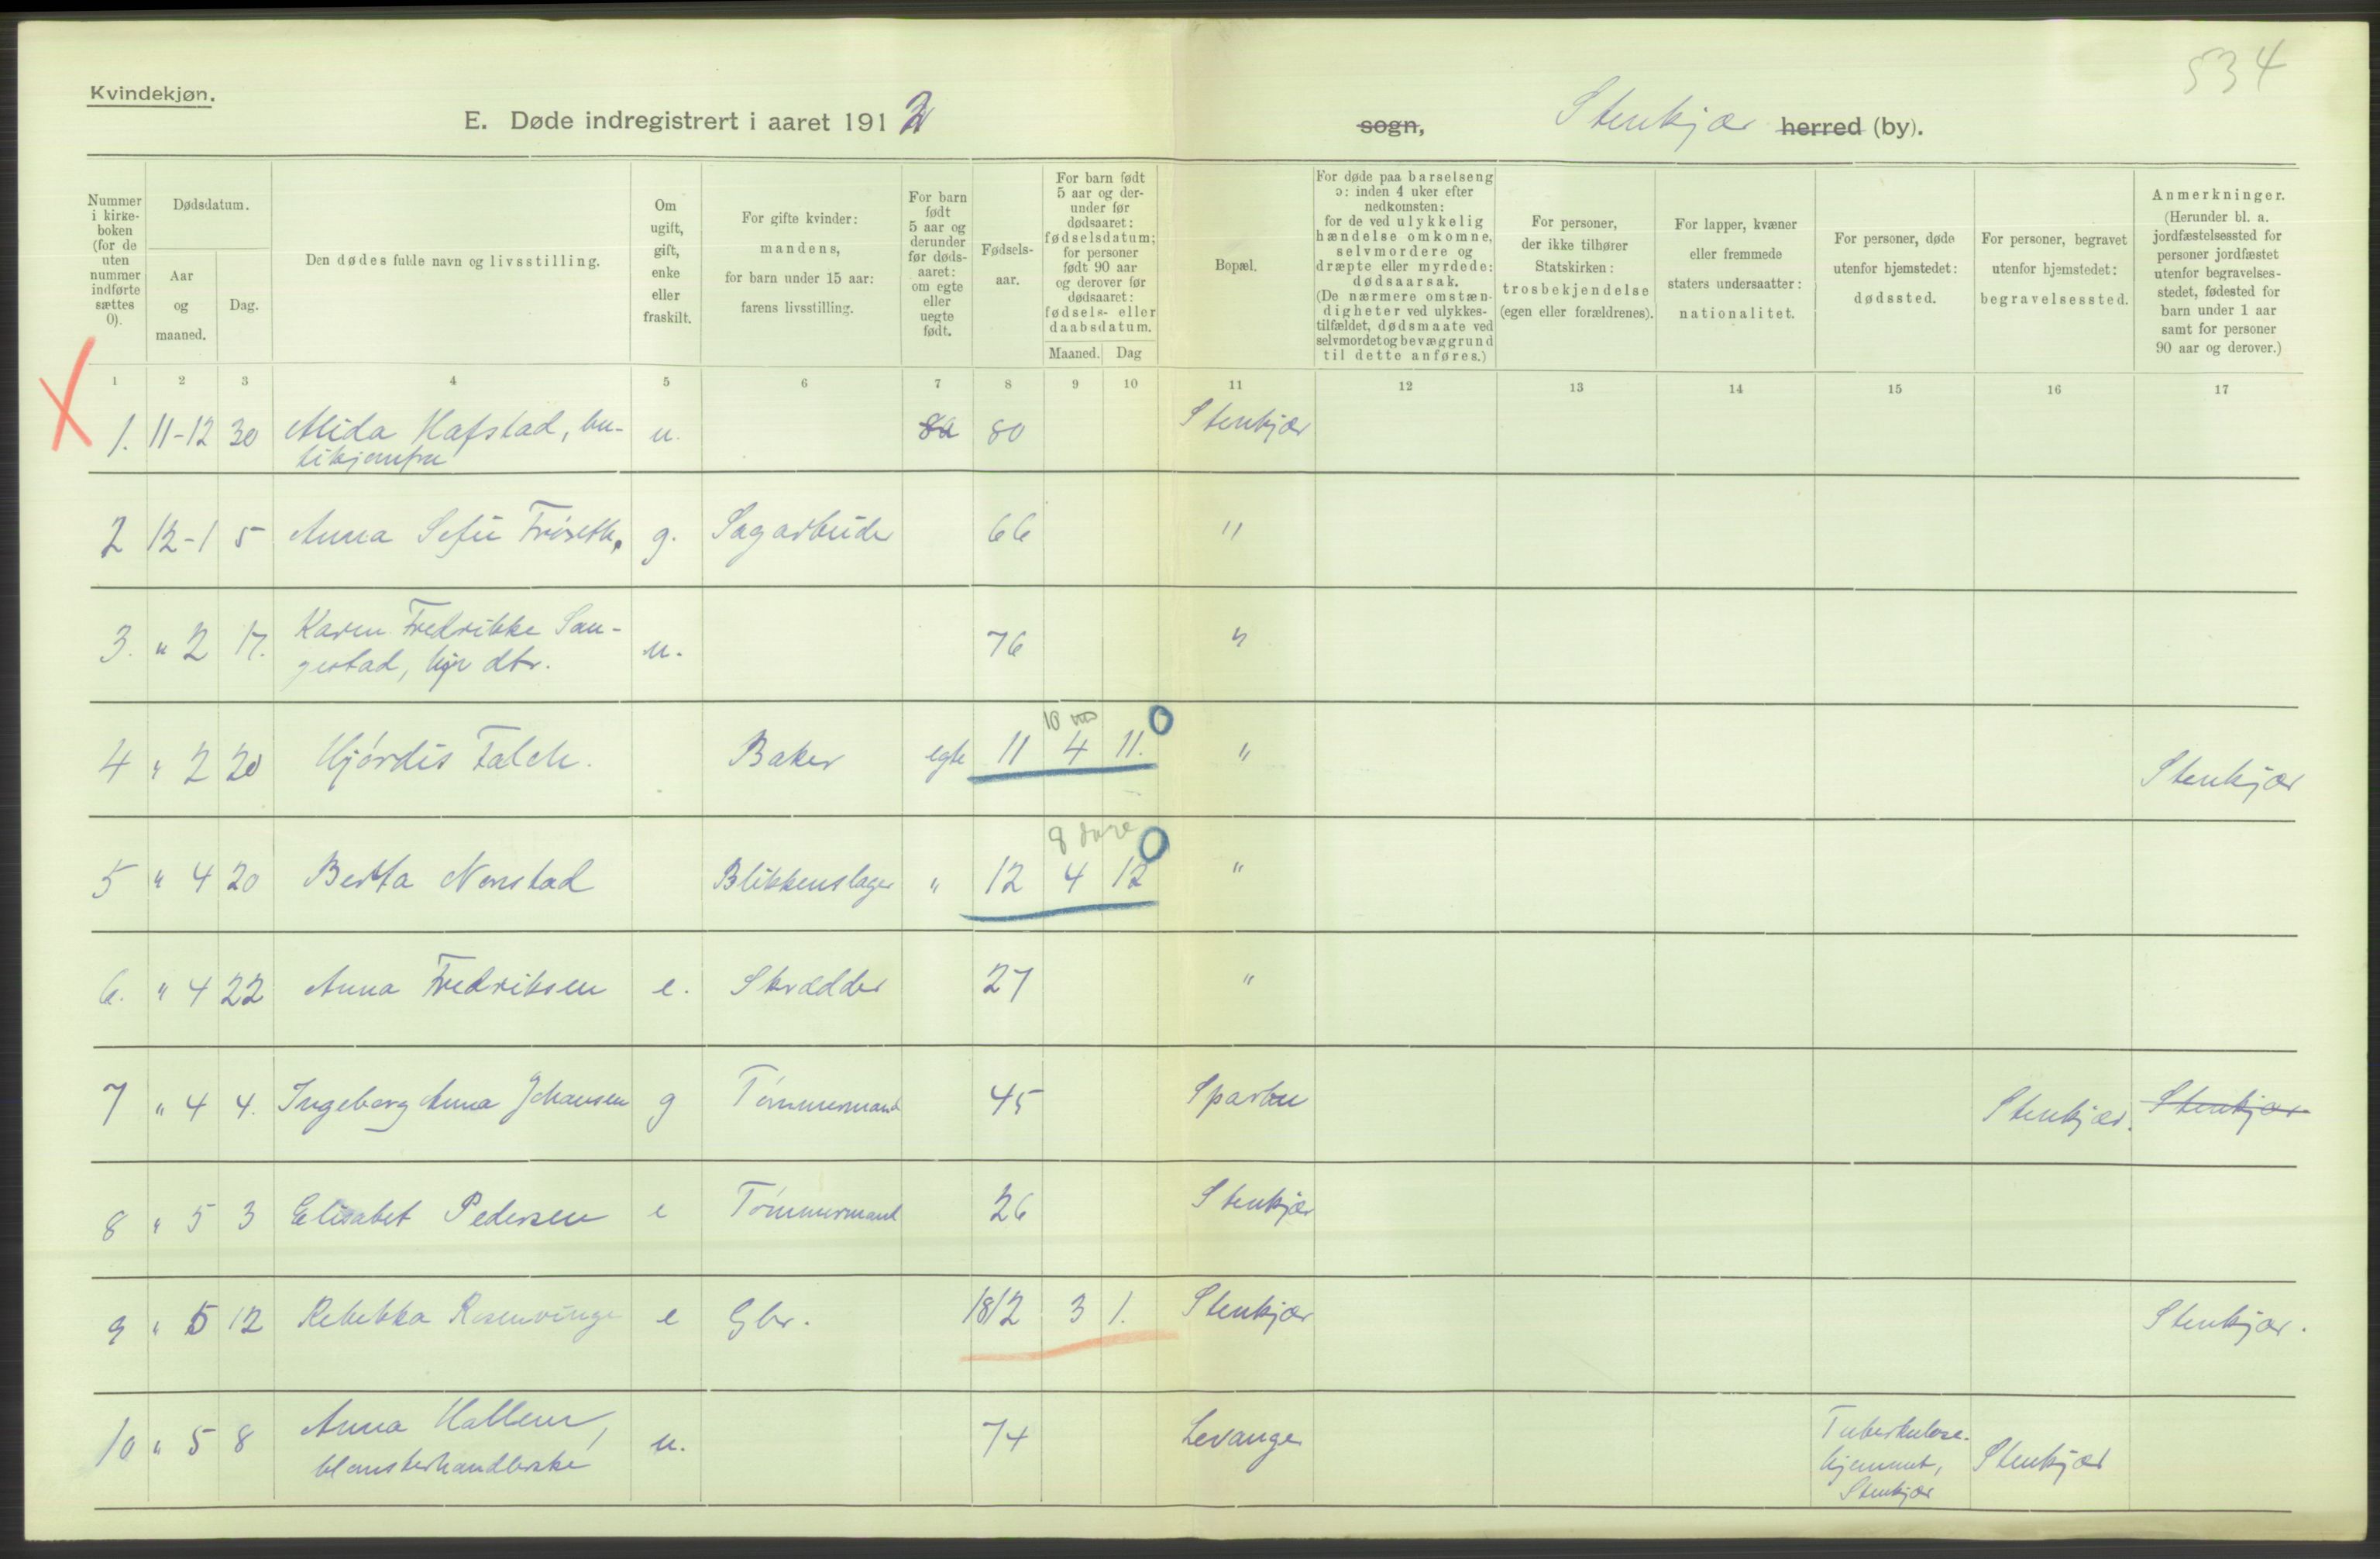 534
Kvindekjøn.
E. Døde indregistrert i aaret 1912
sogn, Stenkjær herred (by).
Nummer i kirke-boken (for de uten nummer indførte sættes 0).
Dødsdatum.
Aar og maaned.
Dag.
Den dødes fulde navn og livsstilling.
Om ugift, gift, enke eller fraskilt.
For gifte kvinder: mandens, for barn under 15 aar: farens livsstilling.
For barn født 5 aar og derunder før døds-aaret: om egte eller uegte født.
Fødsels-aar.
For barn født 5 aar og der-under før dødsaaret: fødselsdatum; for personer født 90 aar og derover før dødsaaret: fødsels- eller daabsdatum.
Maaned. Dag
Bopæl.
For døde paa barselseng ɔ: inden 4 uker efter nedkomsten: for de ved ulykkelig hændelse omkomne, selvmordere og dræpte eller myrdede: dødsaarsak. (De nærmere omstæn-digheter ved ulykkes-tilfældet, dødsmaate ved selvmordet og bevæggrund til dette anføres.)
For personer, der ikke tilhører Statskirken: trosbekjendelse (egen eller forældrenes).
For lapper, kvæner eller fremmede staters undersaatter: nationalitet.
For personer, døde utenfor hjemstedet: dødssted.
For personer, begravet utenfor hjemstedet: begravelsessted.
Anmerkninger. (Herunder bl. a. jordfæstelsessted for personer jordfæstet utenfor begravelses-stedet, fødested for barn under 1 aar samt for personer 90 aar og derover.)
1 2 3 4 5 6 7 8 9 10 11 12 13 14 15 16 17
1. 11-12 30 Alida Hafstad, bu- u. 80 80 Stenkjær
tikjomfru
2 12-1 5 Anna Sefie Frøseth, g. Sagarbeider 66 "
3. " 2 17. Karen Fredrikke Sau- u. 76 "
gestad, dtr.
10
4 " 2 20 Hjørdis Falch. Baker egte 11 4 11. 0 " Stenkjær
8 dage
5 " 4 20 Berta Nonstad Blikkenslager " 12 4 12 0 "
6. " 4 22 Anna Fredriksen e. Skrædder 27 "
7 " 4 4. Ingeborg Anna Johansen g Tømmermand 45 Sparbu Stenkjær. Stenkjær
8 " 5 3 Elisabet Pedersen e Tømmermand 26 Stenkjær
9 " 5 12 Rebekka Rosenvinge e Gbr. 1812 3 1. Stenkjær Stenkjær.
10 " 5 8 Anna Hallem, u. 74 Levanger Tuberkulose-
blomsterhandlerske hjemmet, Stenkjær
Stenkjær